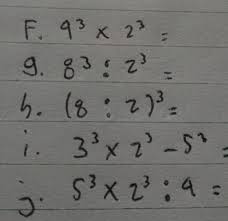 F. 9³ × 2³ =
g. 8³ : 2³ =
h. (8 : 2)³ =
i. 3³ × 2³ - 5³ =
j. 5³ × 2³ : 4 =